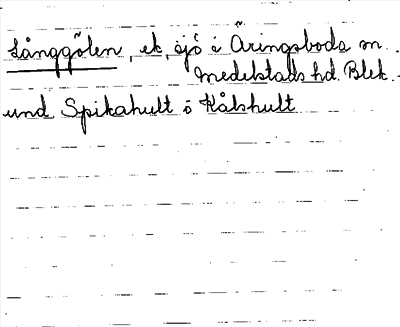 Långgölen, ek, sjö i Äringsboda sn.
Medelstads hd. Blek.
und Spikahult o Kålshult